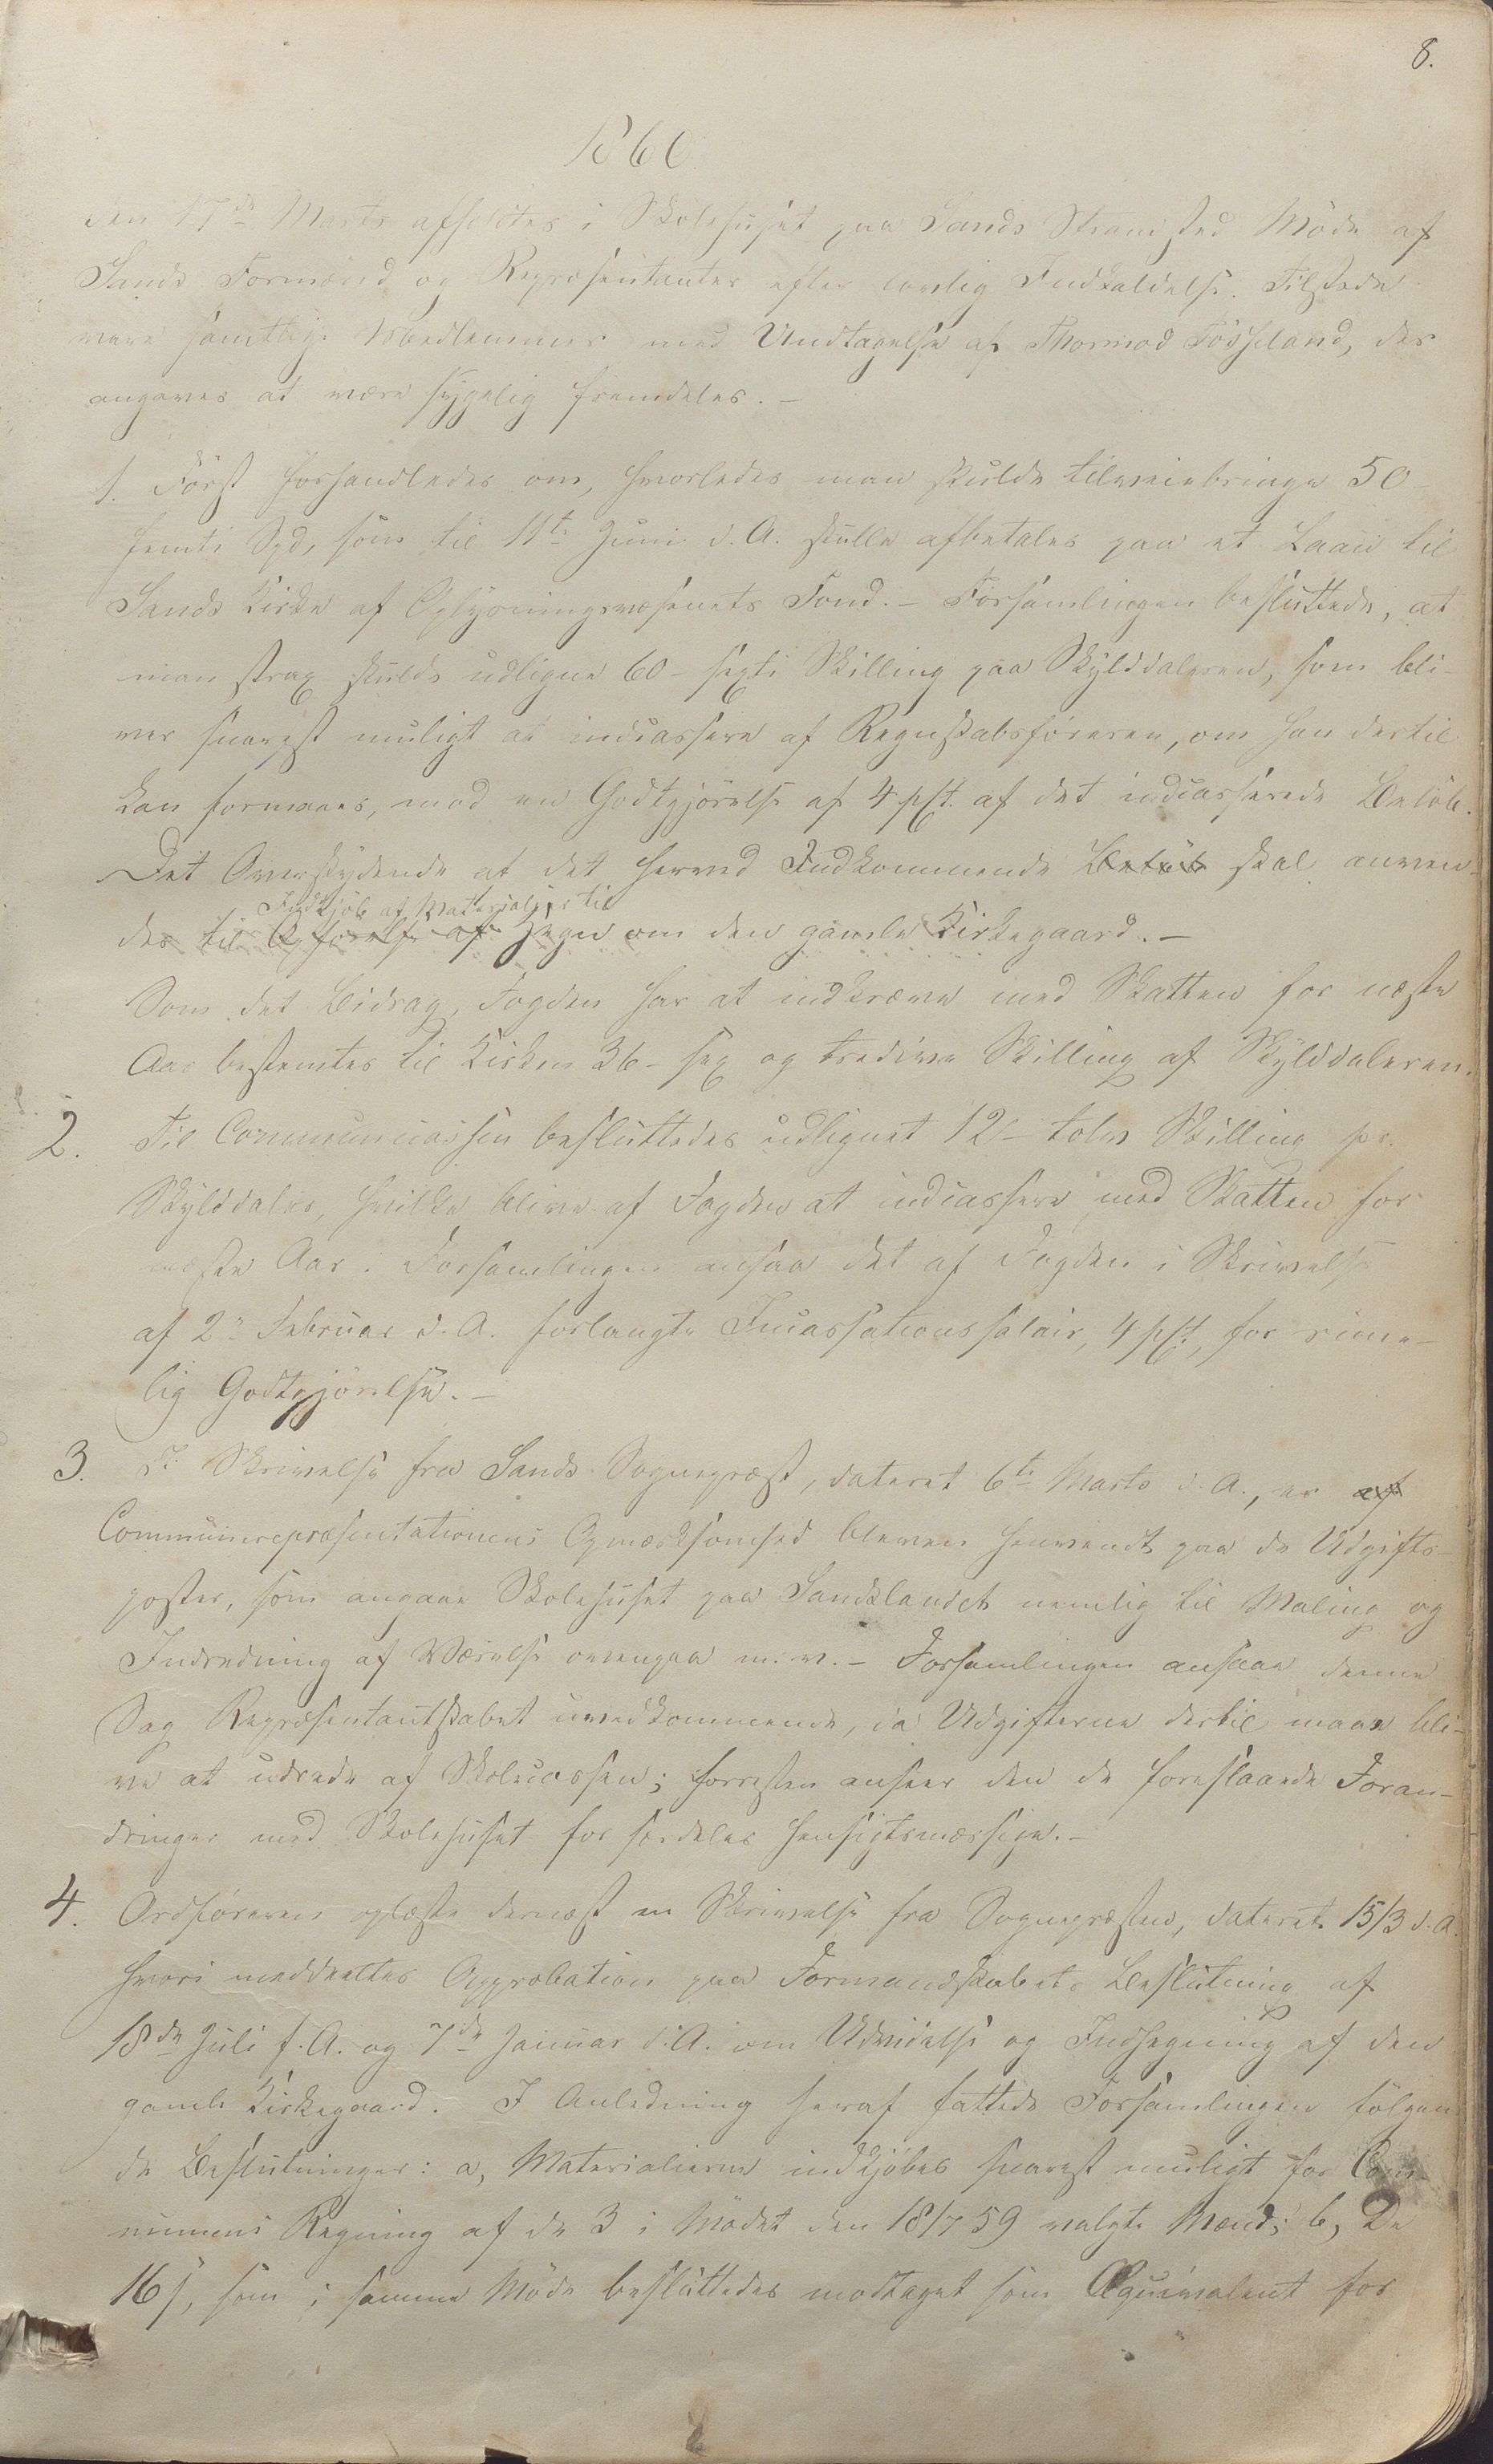 8.
1860
den 17de Marts afholdtes i Skolehuset paa Sands Strandsted Møde af
Sands Formænd og Repræsentanter efter lovlig Indkaldelse. Tilstede
vare samtlige Medlemmer med Undtagelse af Thormod Fosseland, der
angaves at være sygelig fremdeles. -
1. Først forhandledes om, hvorledes man skulde tilveiebringe 50 -
femti Spd, som til 11te Juni d. A. skulle afbetales paa et Laan til
Sands Kirke af Oplysningsvæsenets Fond. - Forsamlingen besluttede, at
man strax skulde udligne 60 - sexti Skilling paa Skylddaleren, som bli-
ver snarest muligt at indcassere af Regnskabsføreren, om han dertil
kan formaaes, mod en Godtgjørelse af 4 pCt. af det indcasserede Beløb.
Det Overskydende af det herved Indkommende Beløb skal anven-
Indkjøb af Materialier til
des til Opførelse af Hegn om den gamle Kirkegaard. -
Som det Bidrag, Fogden har at indkræve med Skatten for næste
Aar bestemtes til Kirken 36 - sex og tredive Skilling af Skylddaleren.
2. Til Communecassen besluttedes udlignet 12 - tolv Skilling pr.
Skylddaler, hvilke blive af Fogden at indcassere med Skatten for
næste Aar. Forsamlingen ansaa det af Fogden i Skrivelse
af 2den Februar d. A. forlangte Incassationssalair, 4 pCt., for rime-
lig Godtgjørelse. -
3. I Skrivelse fra Sands Sognepræst, dateret 6te Marts d. A., er af
Communerepræsentationens Opmærksomhed bleven henvendt paa de Udgifts-
poster, som angaae Skolehuset paa Sandslandet nemlig til Maling og
Indredning af Værelse ovenpaa m. v. - Forsamlingen ansaae denne
Sag Repræsentantskabet uvedkommende, da Udgifterne dertil maae bli-
ve at udrede af Skolecassen; forresten anseer den de foreslaaede Foran-
dringer med Skolehuset for særdeles hensigtsmæssige. -
4. Ordføreren oplæste dernæst en Skrivelse fra Sognepræsten, dateret 15/3 d. A.
hvori meddeeltes Approbation paa Formandskabets Beslutning af
18de Juli f. A. og 7de Januar d. A. om Udvidelse og Indhegning af den
gamle Kirkegaard. I Anledning heraf fattede Forsamlingen følgen-
de Beslutninger: a, Materialierne indkjøbes snarest muligt for Com-
munens Regning af de 3 i Mødet den 18/7 59 valgte Mænd; b, De
16 s, som i samme Møde besluttedes modtaget som Æquivalent for